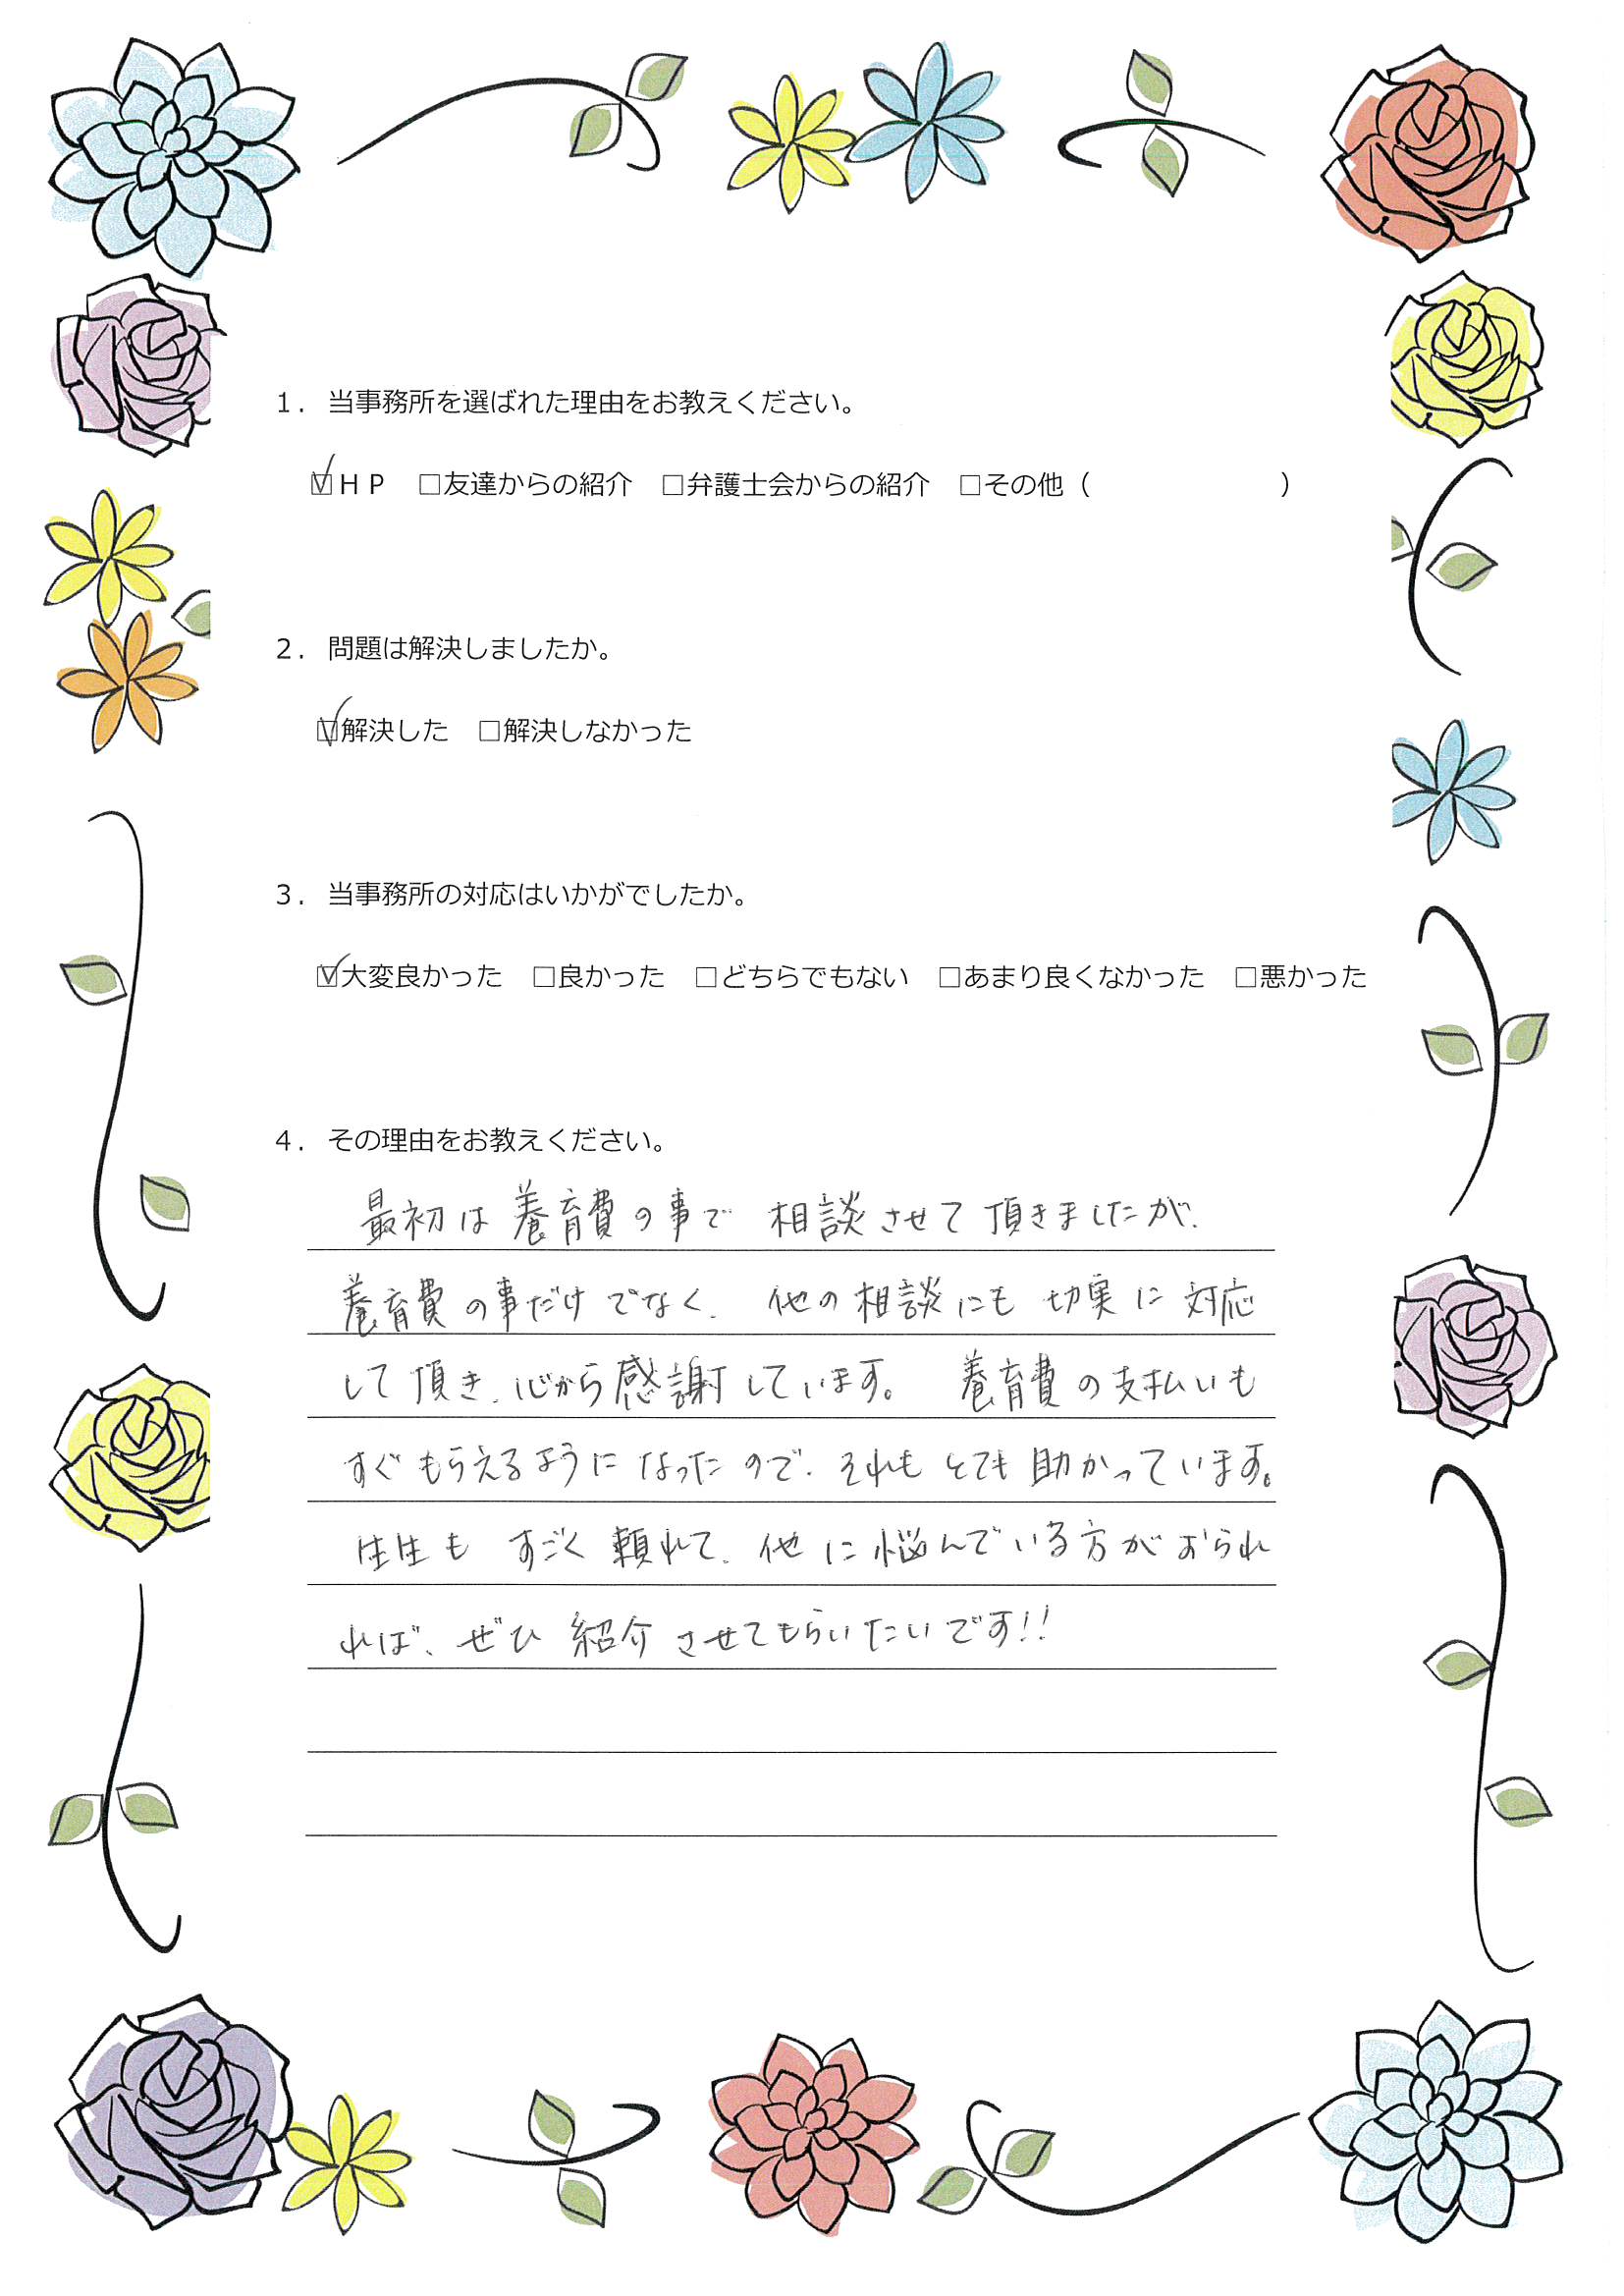 1. 当事務所を選ばれた理由をお教えください。
☑ＨＰ　□友達からの紹介　□弁護士会からの紹介　□その他（　　　　　　　）
2. 問題は解決しましたか。
☑解決した　□解決しなかった
3. 当事務所の対応はいかがでしたか。
☑大変良かった　□良かった　□どちらでもない　□あまり良くなかった　□悪かった
4. その理由をお教えください。
最初は養育費の事で 相談させて頂きましたが、
養育費の事だけでなく、他の相談にも 切実に 対応
して頂き、心から感謝しています。 養育費の支払いも
すぐもらえるようになったので、それもとても助かっています。
先生も すごく頼れて、他に悩んでいる方がおられ
れば、ぜひ 紹介させてもらいたいです!!